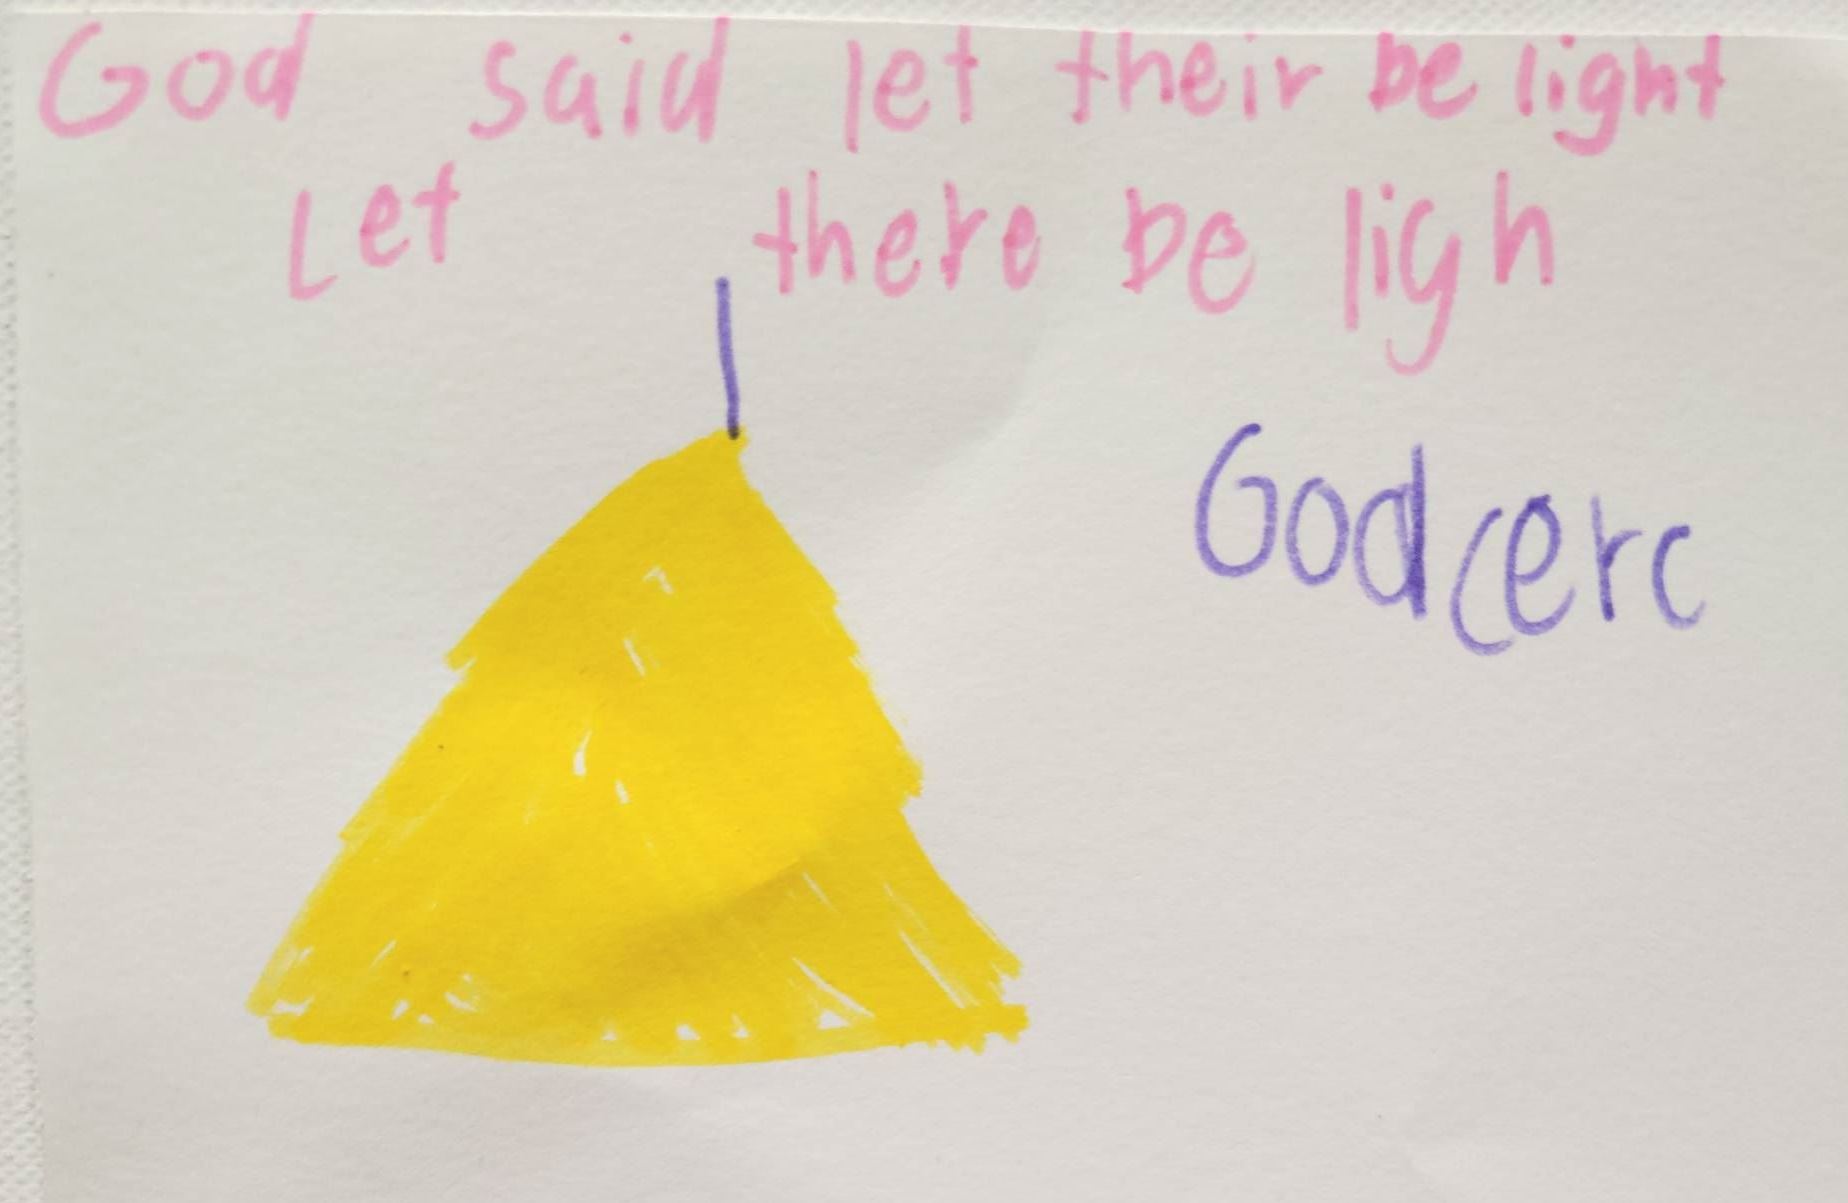 God said let their be light
Let there be ligh
God cerc